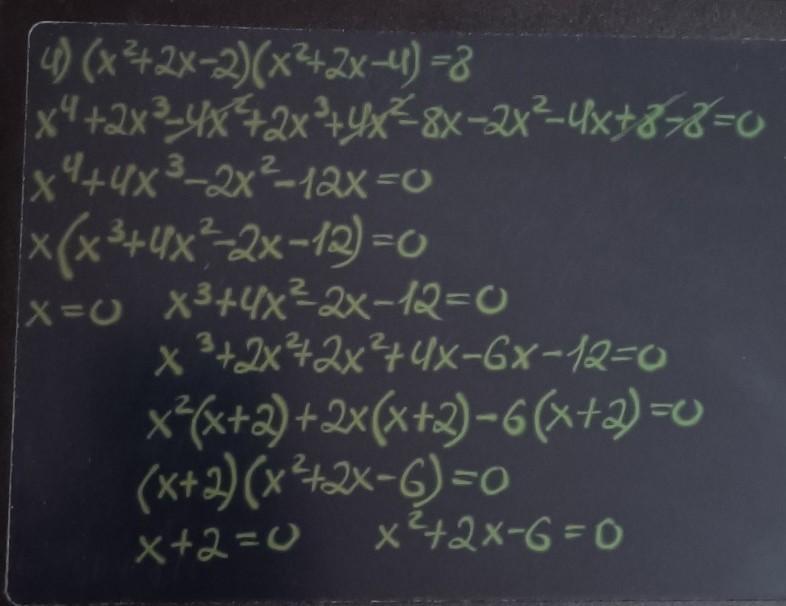 4) (x²+2x-2)(x²+2x-4)=8
x⁴+2x³-4x²+2x³+4x²-8x-2x²-4x+8-8=0
x⁴+4x³-2x²-12x=0
x(x³+4x²-2x-12)=0
x=0 x³+4x²-2x-12=0
x³+2x²+2x²+4x-6x-12=0
x²(x+2)+2x(x+2)-6(x+2)=0
(x+2)(x²+2x-6)=0
x+2=0 x²+2x-6=0